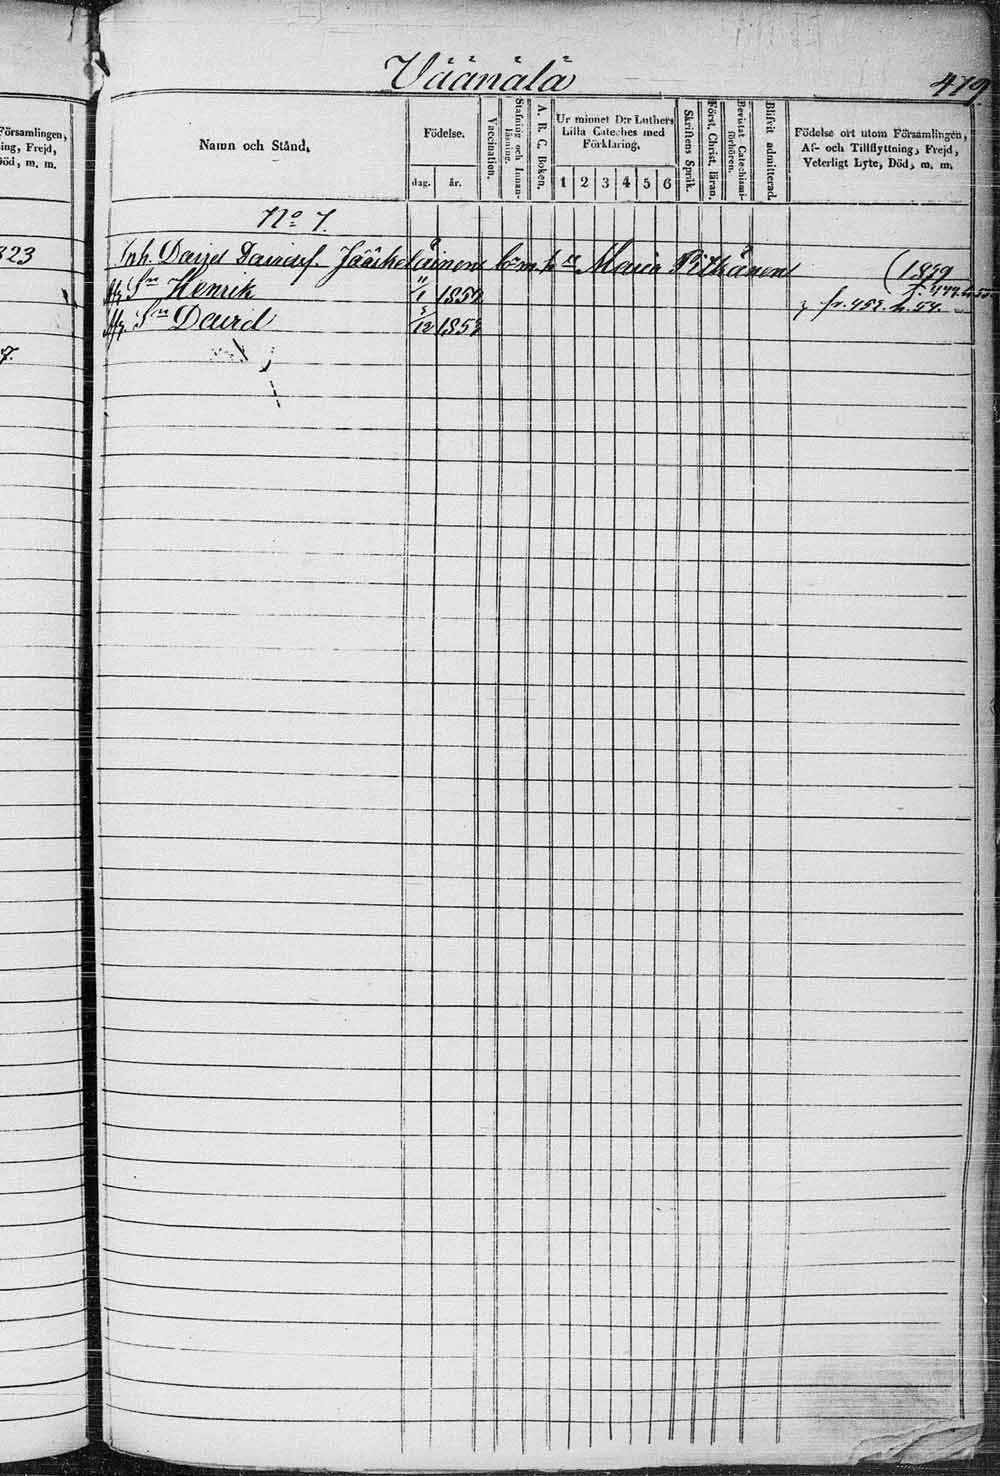 Väänälä
419.
Församlingen,
ing, Frejd,
Död, m. m.
Namn och Stånd.
Födelse.
dag.
år.
Vaccination.
Stafning och Innan-
läsning.
A. B. C. Boken.
Ur minnet D:r Luthers
Lilla Cateches med
Förklaring.
1 2 3 4 5 6
Skriftens Språk.
Först. Christ. läran.
Bevistat Catechismi-
förhören.
Blifvit admitterad.
Födelse ort utom Församlingen,
Af- och Tillflyttning, Frejd,
Veterligt Lyte, Död, m. m.
No 7.
323
Inh. David Davidsf. Jääskeläinen Maria Pitkänen
(1829
Sn Henrik 1857
Sn David 12 1853
fr. 452. 54.
7.